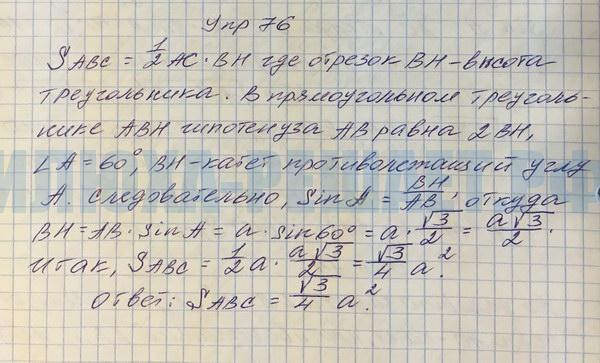 Упр 76
S ABC = 1/2 AC · BH где отрезок BH – высота
треугольника. В прямоугольном треуголь-
нике ABH гипотенуза AB равна 2BH,
∠A = 60°, BH – катет противолежащий углу
A. следовательно, sin A = BH/AB, откуда
BH = AB · sin A = a · sin 60° = a · √3/2 = a√3/2.
Итак, S ABC = 1/2 a · a√3/2 = √3/4 a².
Ответ: S ABC = √3/4 a².